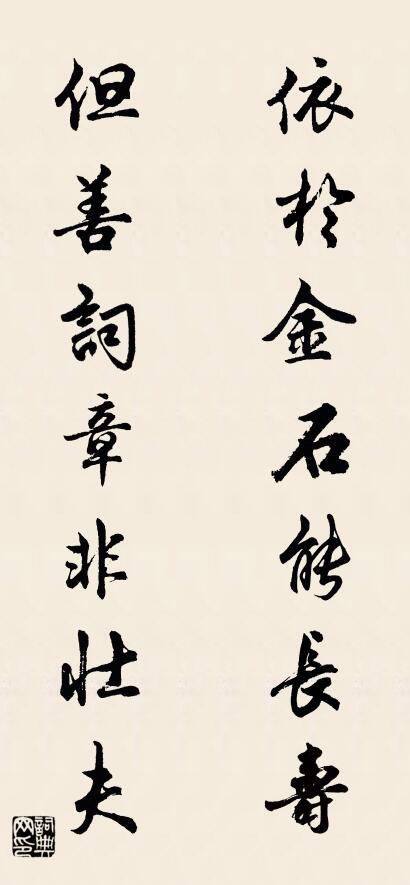 依於金石能長壽
但善詞章非壯夫
詞典网印